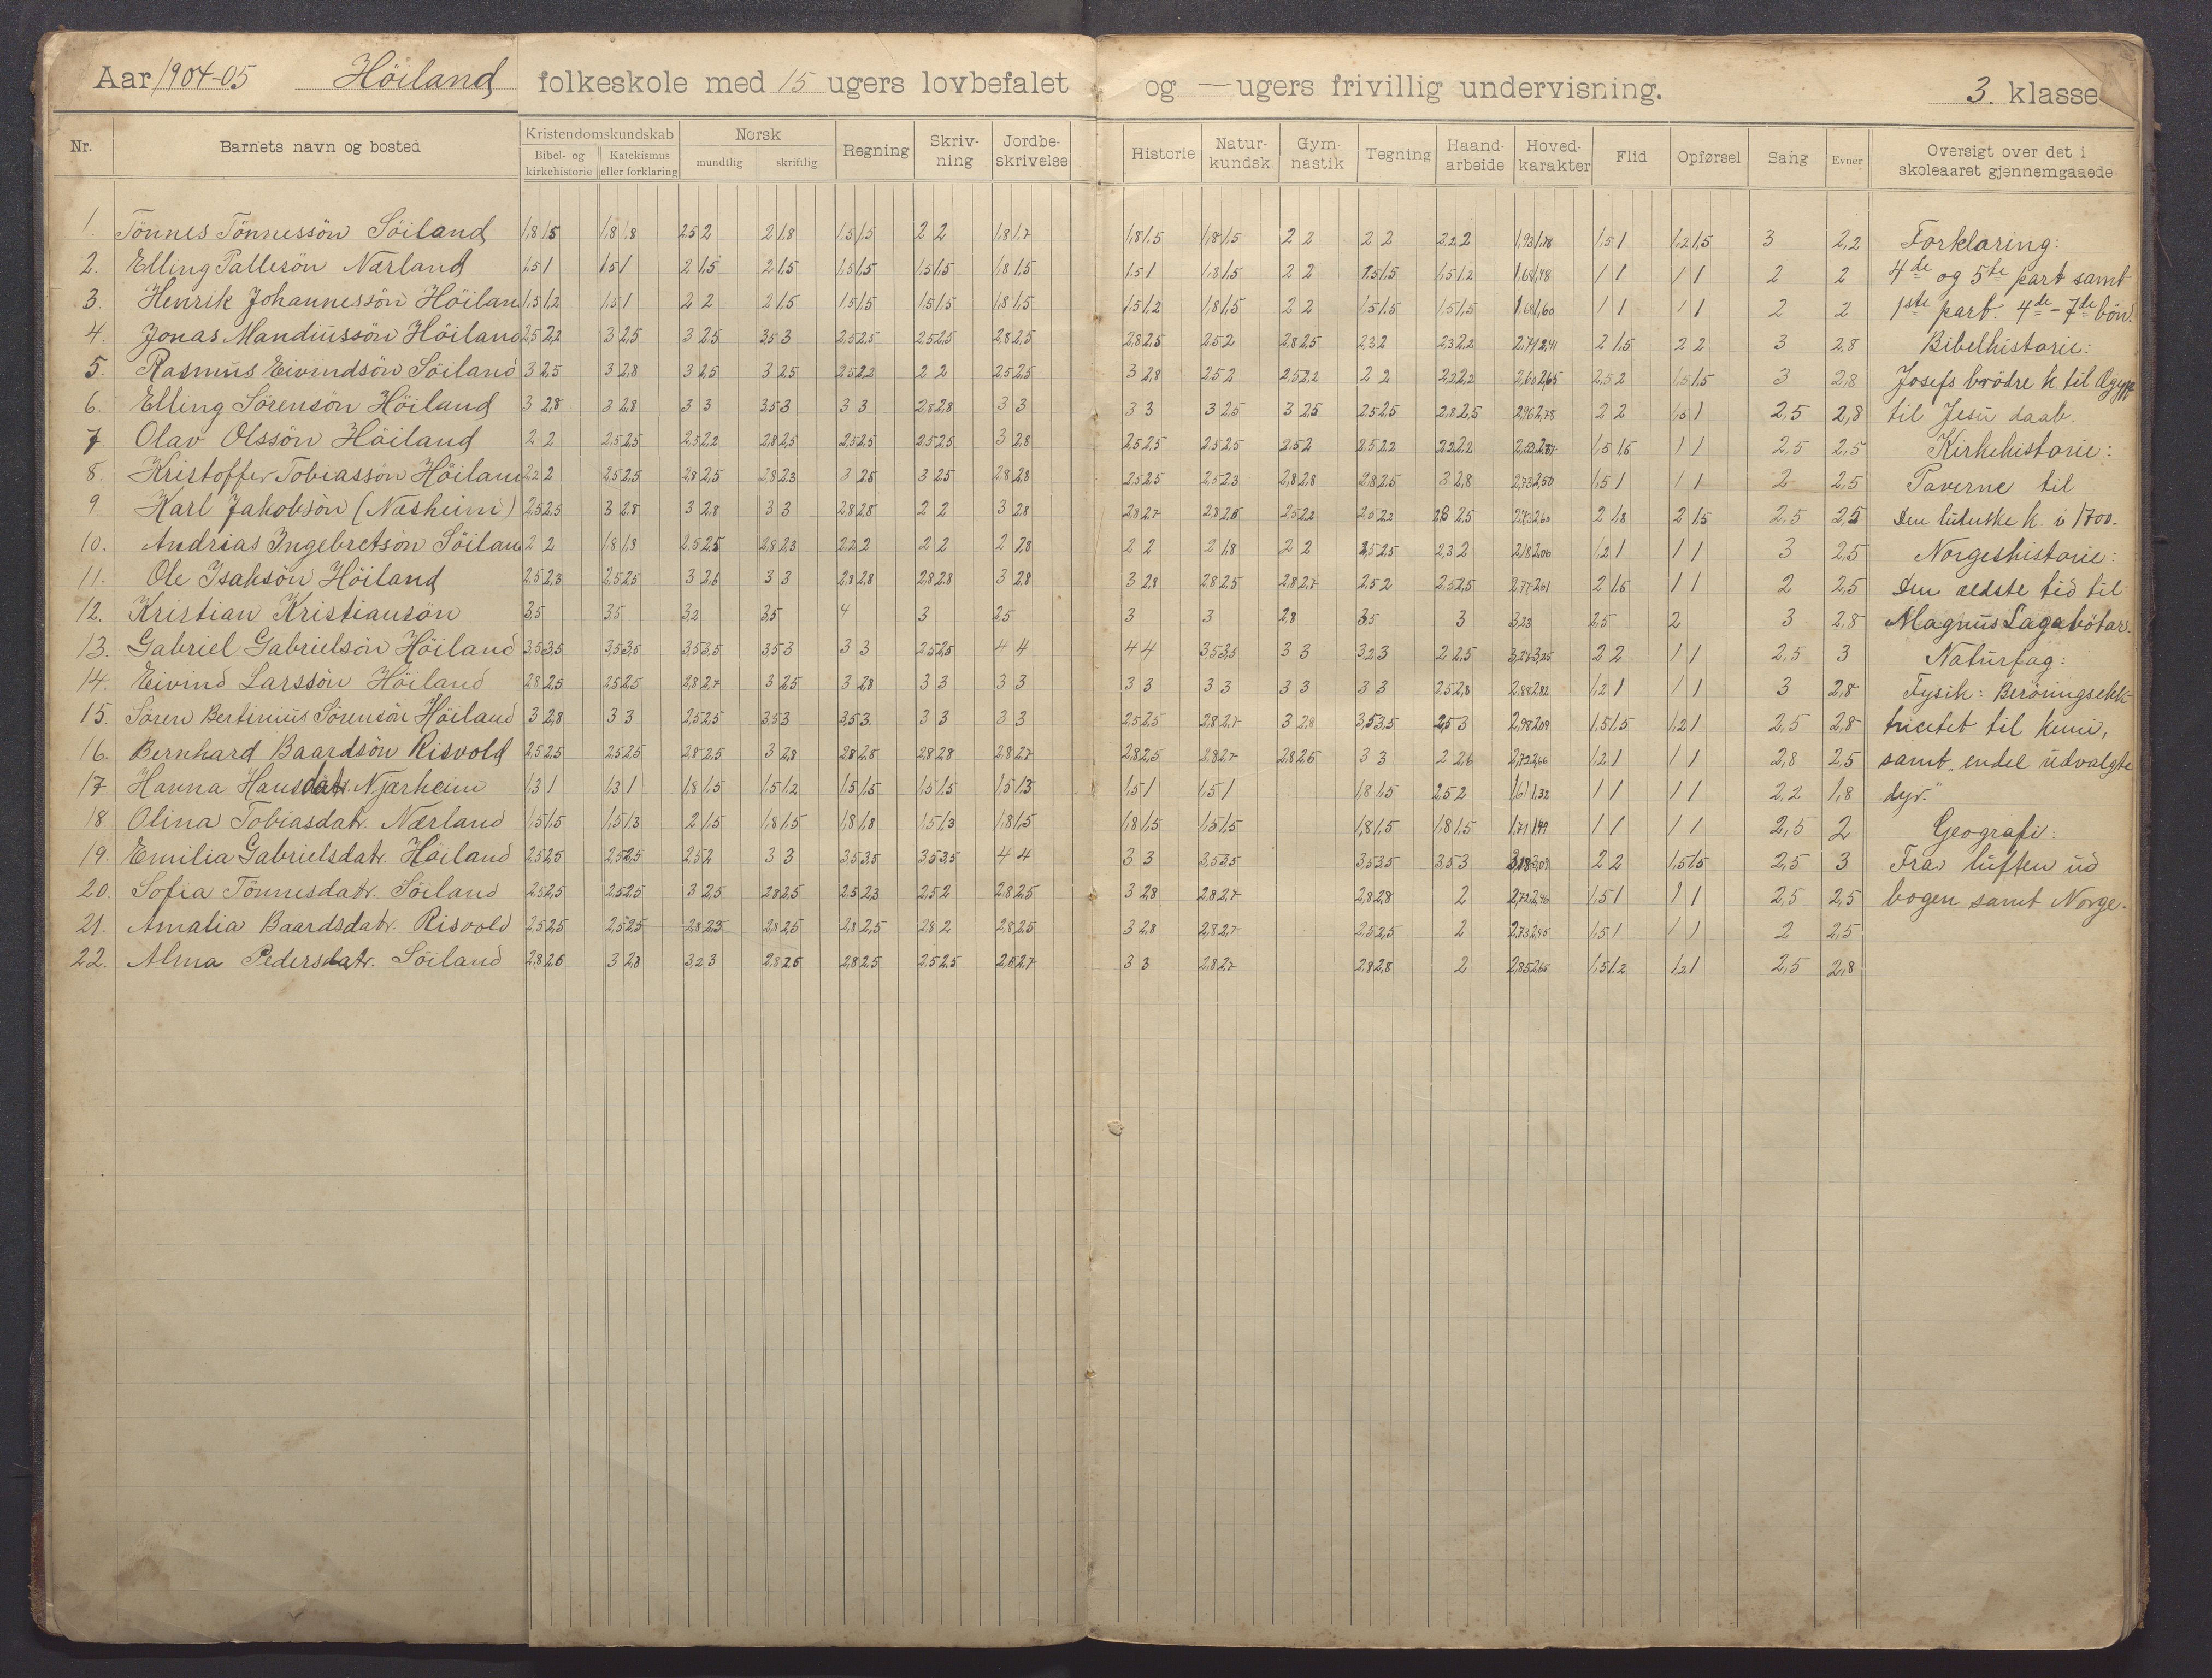 Aar 1904-05 Höiland folkeskole med 15 ugers lovbefalet og — ugers frivillig undervisning. 3. klasse
Nr. Barnets navn og bosted Kristendomskundskab Norsk Regning Skriv- ning Jordbe- skrivelse Historie Natur- kundsk. Gym- nastik Tegning Haand- arbeide Hoved- karakter Flid Opførsel Sang Evner Oversigt over det i skoleaaret gjennemgaaede
Bibel- og kirkehistorie Katekismus eller forklaring mundtlig skriftlig
1. Tönnes Tönnessön Söiland 1,8 1,5 1,8 1,8 2,5 2 2 1,8 1,5 1,5 2 2 1,8 1,7 1,8 1,5 1,8 1,5 2 2 2 2 2,2 2 1,93 1,78 1,5 1 1,2 1,5 3 2,2 Forklaring:
2. Elling Pallesön Nærland 1,5 1 1,5 1 2 1,5 2 1,5 1,5 1,5 1,5 1,5 1,8 1,5 1,5 1 1,8 1,5 2 2 1,5 1,5 1,5 1,2 1 1 1 1 2 2 4de og 5te part samt
3. Henrik Johannessön Höiland 1,5 1,2 1,5 1 2 2 2 1,5 1,5 1,5 1,5 1,5 1,8 1,5 1,5 1,2 1,8 1,5 2 2 1,5 1,5 1,5 1,5 1 1 1 1 2 2 1ste part. 4de - 7de bön.
4. Jonas Mandiussön Höiland 2,5 2,2 3 2,5 3 2,5 3,5 3 2,5 2,5 2,5 2,5 2,8 2,5 2,8 2,5 2,5 2 2,8 2,5 2,3 2 2,3 2,2 2,71 2,41 2 1,5 2 2 3 2,8 Bibelhistorie:
5. Rasmus Eivindsön Söiland 3 2,5 3 2,8 3 2,5 3 2,5 2,5 2,2 2 2 2,5 2,5 3 2,8 2,5 2 2,5 2,2 2 2 2,2 2,2 2,5 2 1,5 1,5 3 2,8 Josefs brödre k. til Ægypt
6. Elling Sörensön Höiland 3 2,8 3 2,8 3 3 3,5 3 3 3 2,8 2,8 3 3 3 3 3 2,5 3 2,5 2,5 2,5 2,8 2,5 2,96 2,78 2 2 1,5 1 2,5 2,8 til Jesu daab.
7. Olav Olssön Höiland 2 2 2,5 2,5 2,5 2,2 2,8 2,5 2,5 2,5 2,5 2,5 3 2,8 2,5 2,5 2,5 2,5 2,5 2 2,5 2,2 2,2 2,2 1,5 1,5 1 1 2,5 2,5 Kirkehistorie:
8. Kristoffer Tobiassön Höiland 2,2 2 2,5 2,5 2,8 2,5 2,8 2,3 3 2,5 3 2,5 2,8 2,8 2,5 2,5 2,5 2,3 2,8 2,8 2,8 2,5 3 2,8 2,73 2,50 1,5 1 1 1 2 2,5 Paverne til
9. Karl Jakobsön (Næsheim) 2,5 2,5 3 2,8 3 2,8 3 3 2,8 2,8 2 2 3 2,8 2,8 2,7 2,8 2,5 2,5 2,2 2,5 2,2 2,5 2,73 2,60 2 1,8 2 1,5 2,5 2,5 Den luterske k. i 1700.
10. Andrias Ingebretsön Söiland 2 2 1,8 1,8 2,5 2,5 2,8 2,3 2,2 2 2 2 2 2,8 2 2 2 1,8 2 2 2,5 2,5 2,3 2 2,18 2,06 1,2 1 1 1 3 2,5 Norgeshistorie:
11. Ole Isaksön Höiland 2,5 2,3 2,5 2,5 3 2,6 3 3 2,8 2,8 2,8 2,8 3 2,8 3 2,8 2,8 2,5 2,8 2,7 2,5 2 2,5 2,5 2,77 2,61 2 1,5 1 1 2 2,5 Den ældste tid til
12. Kristian Kristiansön 3,5 3,5 3,2 3,5 4 3 2,5 3 3 2,8 3,5 3 3,23 2,5 2 3 2,8 Magnus Lagabötar.
13. Gabriel Gabrielsön Höiland 3,5 3,5 3,5 3,5 3,5 3,5 3,5 3 3 3 2,5 2,5 4 4 4 4 3,5 3,5 3 3 3,2 3 2 2,5 2 2 1 1 2,5 3 Naturfag:
14. Eivind Larssön Höiland 2,8 2,5 2,5 2,5 2,8 2,7 3 2,5 3 2,8 3 3 3 3 3 3 3 3 3 3 3 3 2,5 2,8 2,88 2,82 1,2 1 1 1 3 2,8 Fysik: Beröringselek-
15. Sören Bertinius Sörensön Höiland 3 2,8 3 3 2,5 2,5 3,5 3 3,5 3 3 3 3 3 2,5 2,5 2,8 2,7 3 2,8 3,5 3,5 2,5 3 1,5 1,5 1,2 1 2,5 2,8 tricitet til kemi,
16. Bernhard Baardsön Risvold 2,5 2,5 2,5 2,5 2,8 2,5 3 2,8 2,8 2,8 2,8 2,8 2,8 2,7 2,8 2,5 2,8 2,7 2,8 2,5 3 3 2 2,6 2,72 2,66 1,2 1 1 1 2,8 2,5 samt „endel udvalgte
17. Hanna Hansdatr. Njærheim 1,3 1 1,3 1 1,8 1,5 1,5 1,2 1,5 1,5 1,5 1,5 1,5 1,3 1,5 1 1,5 1 1,8 1,5 2,5 2 1,61 1,32 1 1 1 1 2,2 1,8 dyr."
18. Olina Tobiasdatr. Nærland 1,5 1,5 1,5 1,3 2 1,5 1,8 1,5 1,8 1,8 1,5 1,3 1,8 1,5 1,8 1,5 1,5 1,5 1,8 1,5 1,8 1,5 1,71 1,49 1 1 1 1 2,5 2 Geografi:
19. Emilia Gabrielsdatr. Höiland 2,5 2,5 2,5 2,5 2,5 2 3 3 3,5 3,5 3,5 3,5 4 4 3 3 3,5 3,5 3,5 3,5 3,5 3 2 2 1,5 1,5 2,5 3 Fra luften ud
20. Sofia Tönnesdatr. Söiland 2,5 2,5 2,5 2,5 3 2,5 2,8 2,5 2,5 2,3 2,5 2 2,8 2,5 3 2,8 2,8 2,7 2,8 2,8 2 2,72 2,46 1,5 1 1 1 2,5 2,5 bogen samt Norge.
21. Amalia Baardsdatr. Risvold 2,5 2,5 2,5 2,5 2,8 2,5 2,8 2,5 2,8 2,5 2,8 2 2,8 2,5 3 2,8 2,8 2,7 2,5 2,5 2 2,73 2,45 1,5 1 1 1 2 2,5
22. Alma Pedersdatr. Söiland 2,8 2,6 3 2,8 3,2 3 2,8 2,6 2,8 2,5 2,5 2,5 2,6 2,7 3 3 2,8 2,7 2,8 2,8 2 2,85 2,65 1,5 1,2 1,2 1 2,5 2,8